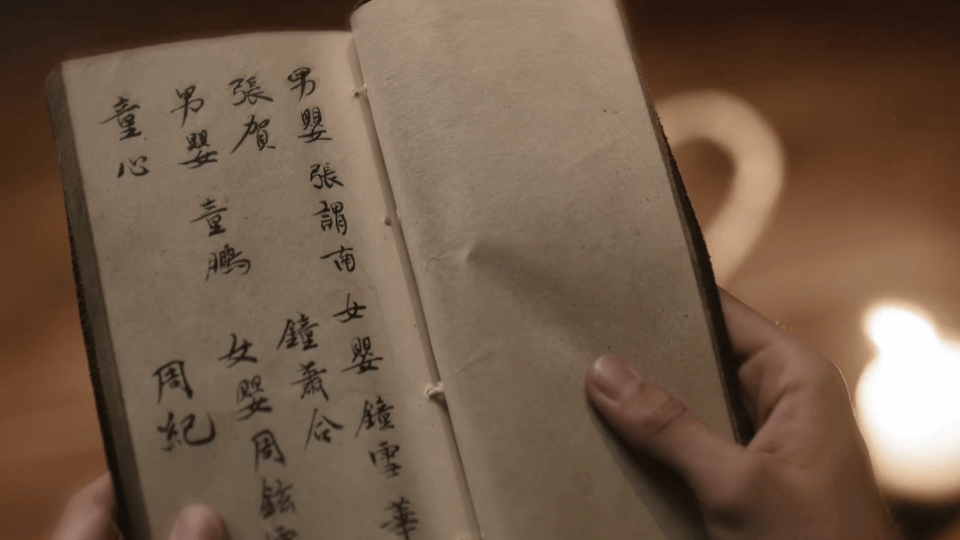 男嬰 張謂南 女嬰 鐘雪華
張賀 鐘蕭合
男嬰 童鵬 女嬰 周鉉
童心 周紀